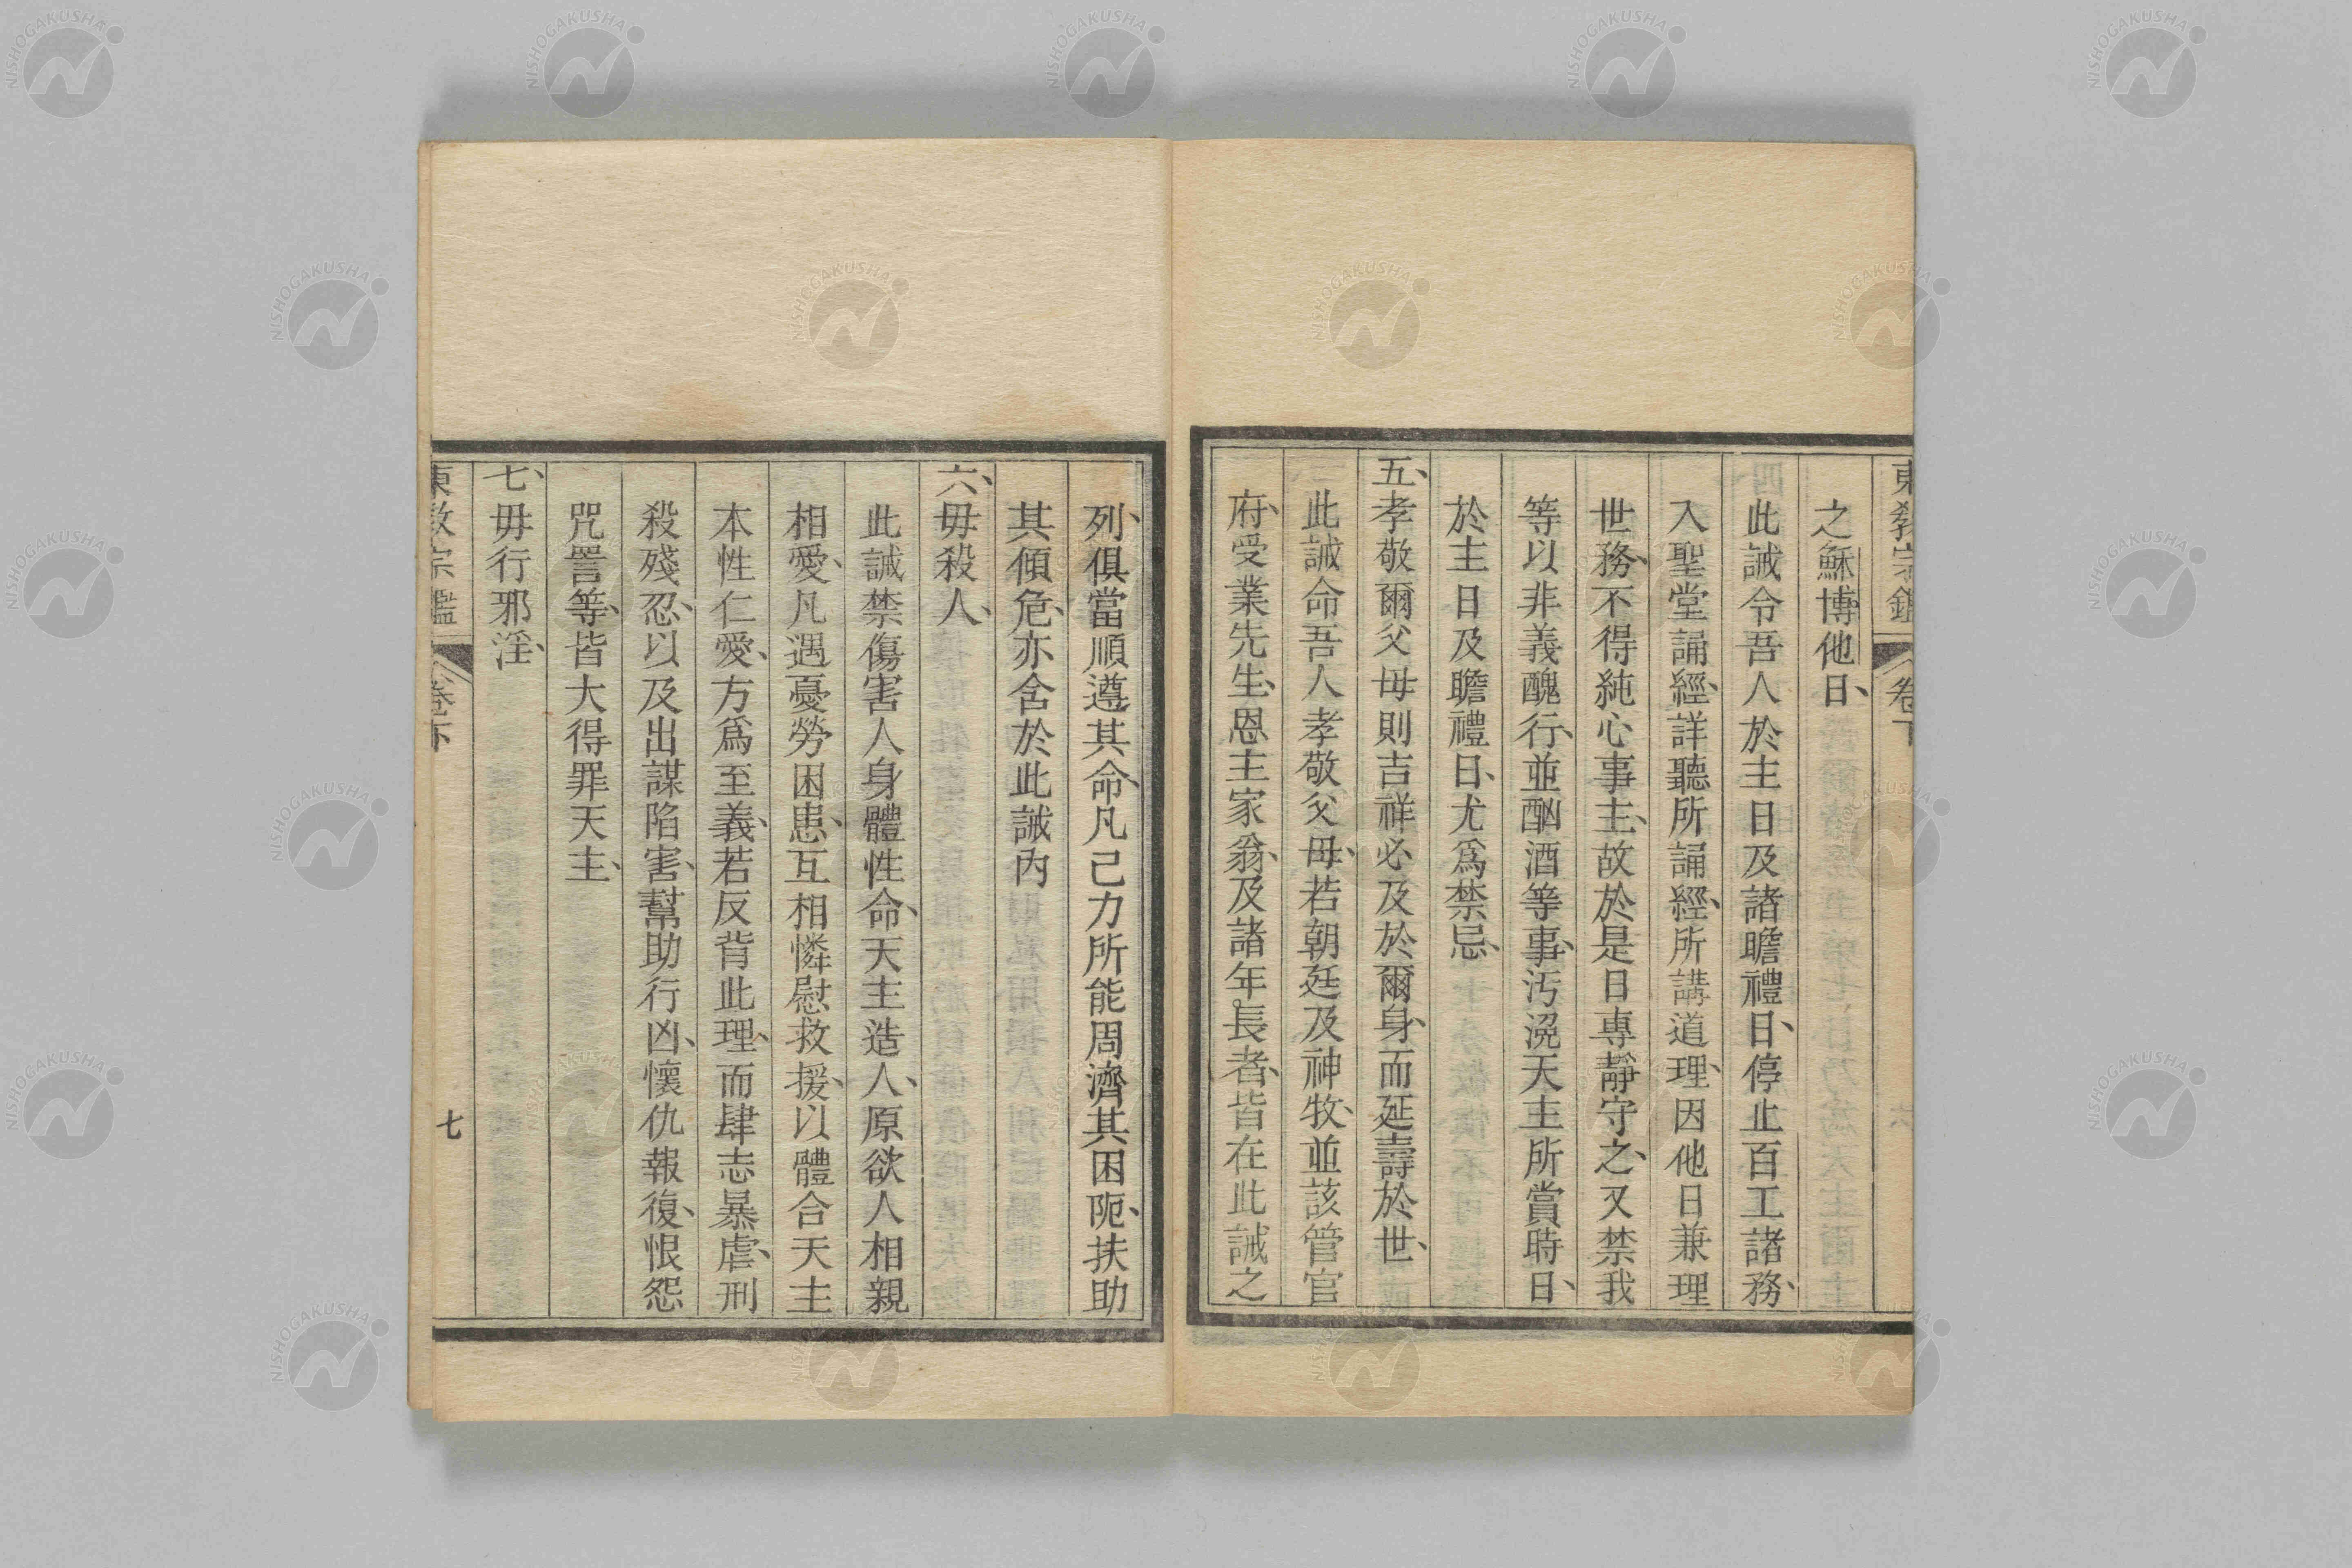 東教宗鑑 卷下
之穌博他日、
此誡令吾人於主日及諸瞻禮日、停止百工諸務、
入聖堂誦經、詳聽所誦經、所講道理、因他日兼理
世務、不得純心事主、故於是日專靜守之、又禁我
等以非義醜行、並酗酒等事、汚浼天主所賞時日、
於主日及瞻禮日、尤爲禁忌、
五、孝敬爾父母則吉祥必及於爾身、而延壽於世、
此誡命吾人孝敬父母、若朝廷及神牧、並該管官
府、受業先生、恩主家翁、及諸年長者、皆在此誡之
列、俱當順遵其命、凡己力所能周濟其困阨、扶助
其傾危、亦含於此誡內
六、毋殺人、
此誡禁傷害人身體性命、天主造人、原欲人相親
相愛、凡遇憂勞困患、互相憐慰救援、以體合天主
本性仁愛、方爲至義、若反背此理、而肆志暴虐、刑
殺殘忍、以及出謀陷害、幫助行凶、懷仇報復、恨怨
咒詈等、皆大得罪天主、
七、毋行邪淫、
東教宗鑑 卷下 七
NISHOGAKUSHA